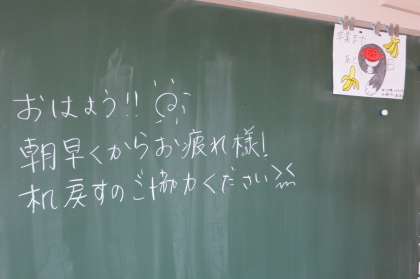 おはよう!!
朝早くからお疲れ様!
机戻すのご協力ください